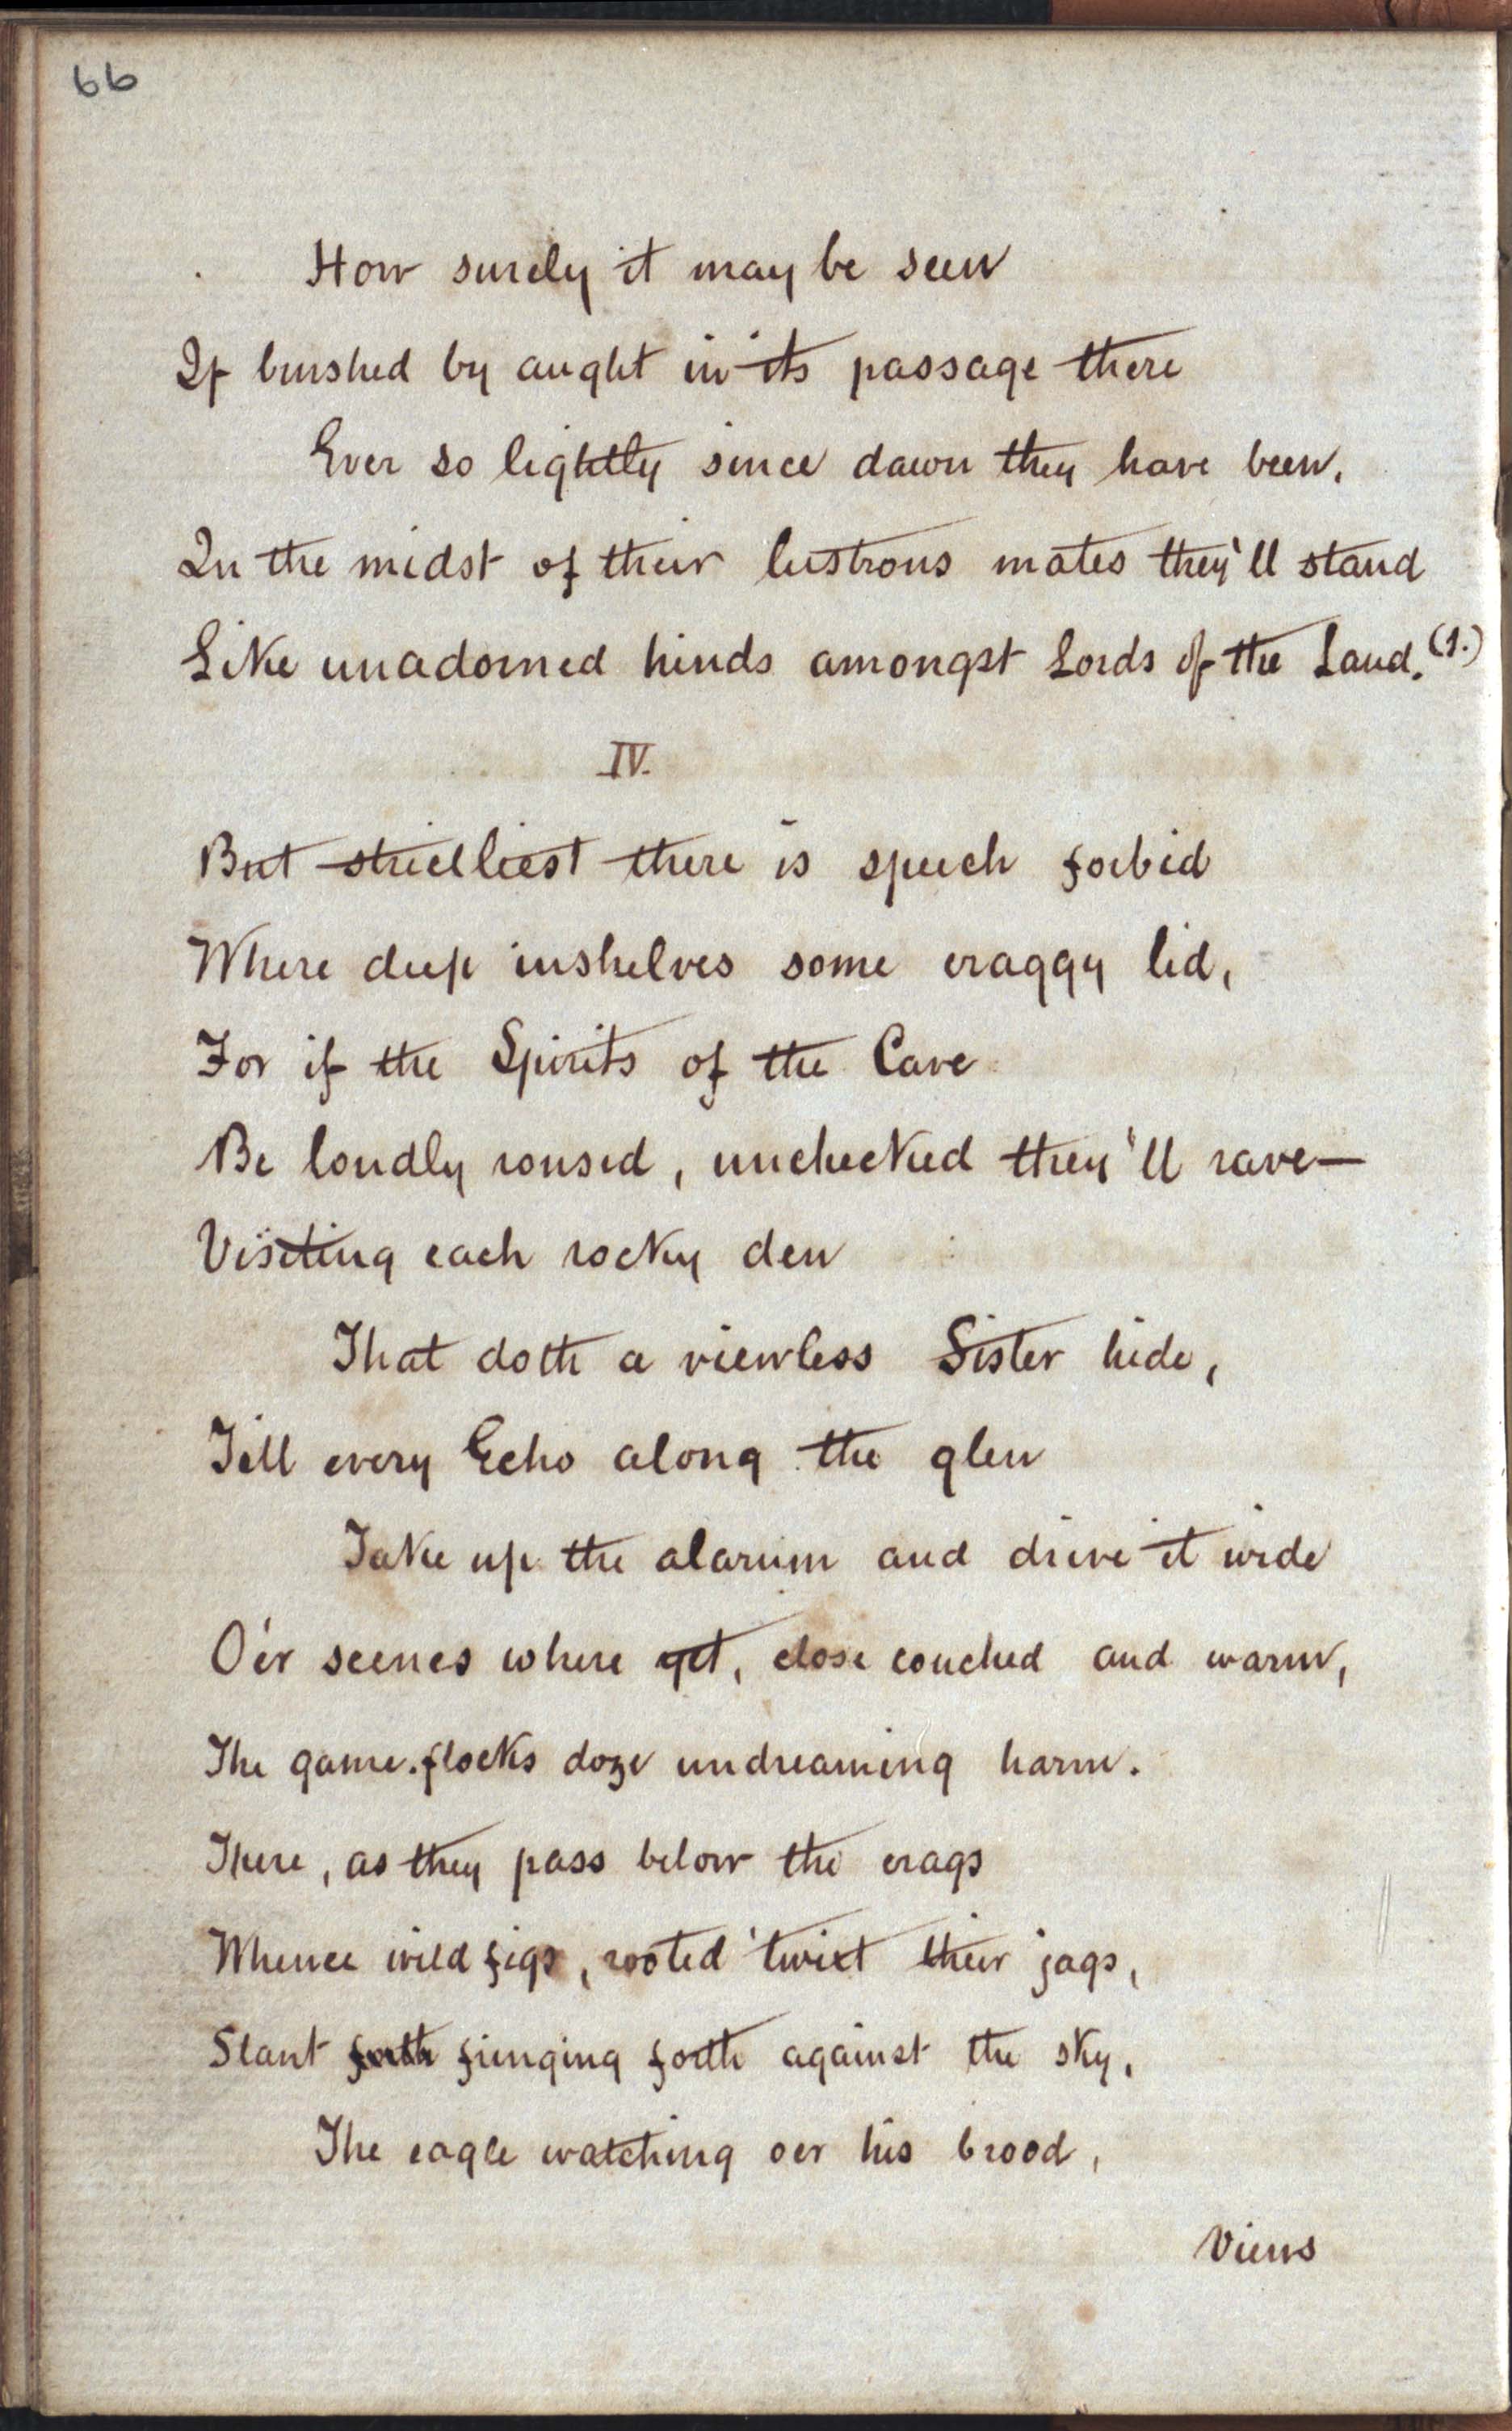 66
How surely it may be seen
If brushed by aught in its passage there
Ever so lightly since dawn they have been,
In the midst of their lustrous mates they'll stand
Like unadorned hinds amongst Lords of the Land. (1.)
IV.
But strictliest there is speech forbid
Where deep inshelves some craggy lid,
For if the Spirits of the Cave
Be loudly roused, unchecked they'll rave—
Visiting each rocky den
That doth a viewless Sister hide,
Till every Echo along the glen
Take up the alarum and drive it wide
O'er scenes where yet, close couched and warm,
The game-flocks doze undreaming harm.
There, as they pass below the crags
Whence wild figs, rooted 'twixt their jags,
Slant forth fringing forth against the sky,
The eagle watching oer his brood,
Views